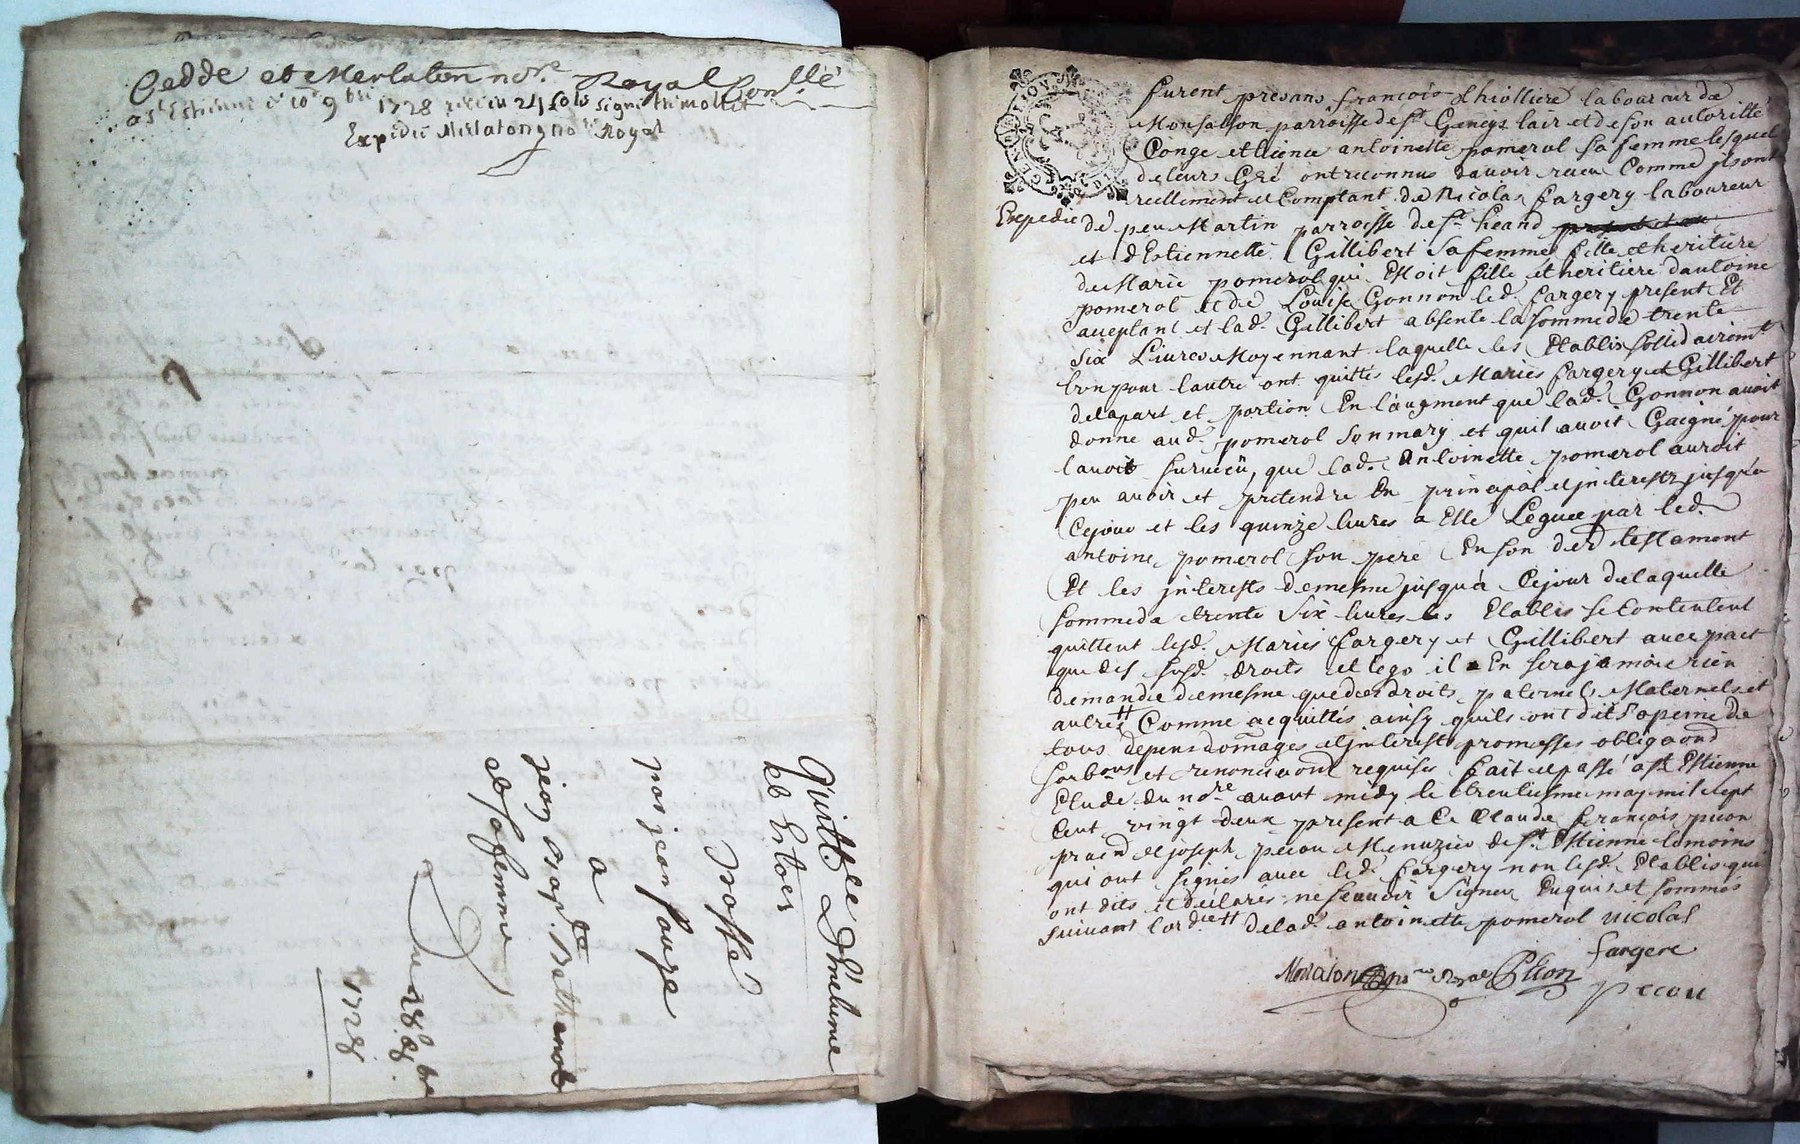 Cedde et Merlaton nore Royal Conlle
a St Estienne ce 10e 9bre 1728 recu 24 sols signé Thimollet
Expédié Merlaton no Royal
Quittce d'hueleme
et Entier
passé
par jean faure
a
jean bapte
et sa femme
Du 28 8bre
1728
furent presans françois Thiolliere laboureur de
Monsalson parroisse de St Geneys lair et de son autoritté
Conge et licence antoinette pomerol sa femme lesquels
de leurs Gré ont reconnus d'avoir receu Comme jls ont
reellement et Comptant de Nicolas fargery laboureur
Expedié
de peu Martin parroisse de St heand
et d'Estiennette Gillibert sa femme fille et heritiere
de Marie pomerol qui Estoit fille et heritiere dantoine
pomerol et de Louise Gonnon led. fargery present Et
aceptant et lad. Gillibert absente la somme de trente
six Livres Moyennant laquelle les Etablis sollidairemt
lun pour lautre ont quittés lesd. Mariés fargery et Gillibert
de la part et portion En l'augment que lad. Gonnon avoit
donné aud. pomerol son mary et quil avoit Gaigné pour
lavoit surveçü, que lad. Antoinette pomerol auroit
peu avoir et pretendre En principal et jnterests jusqu'a
Cejour et les quinze livres a Elle Leguée par led.
antoine pomerol son pere En son der testament
Et les jnterests de mesme jusqu'a Cejour de laquelle
somme de trente six livres les Etablis se Contentent
quittent lesd. Mariés fargery et Gillibert avec pact
que des susd. droits et lego il En sera jamais rien
demandé de mesme que des droits paternels Maternels et
autres Comme acquittés ainsy quils ont dit a peine de
tous depens domages et jnterests promesses obligaond
sorbons et renonciaons requises fait et passé a St Estienne
Etude du nore avant midy le trentiesme may mil sept
Cent vingt deux present a Ce Claude françois picon
pracn et joseph pecou Menuzier de St Estienne temoins
qui ont signés avec led. fargery non lesd. Etablis qui
ont dits et declarés ne sçavoir signer Enquis et sommés
suivant l'ord. de lad. antoinette pomerol nicolas
fargere
Merlaton nore Royal Picon
pecou